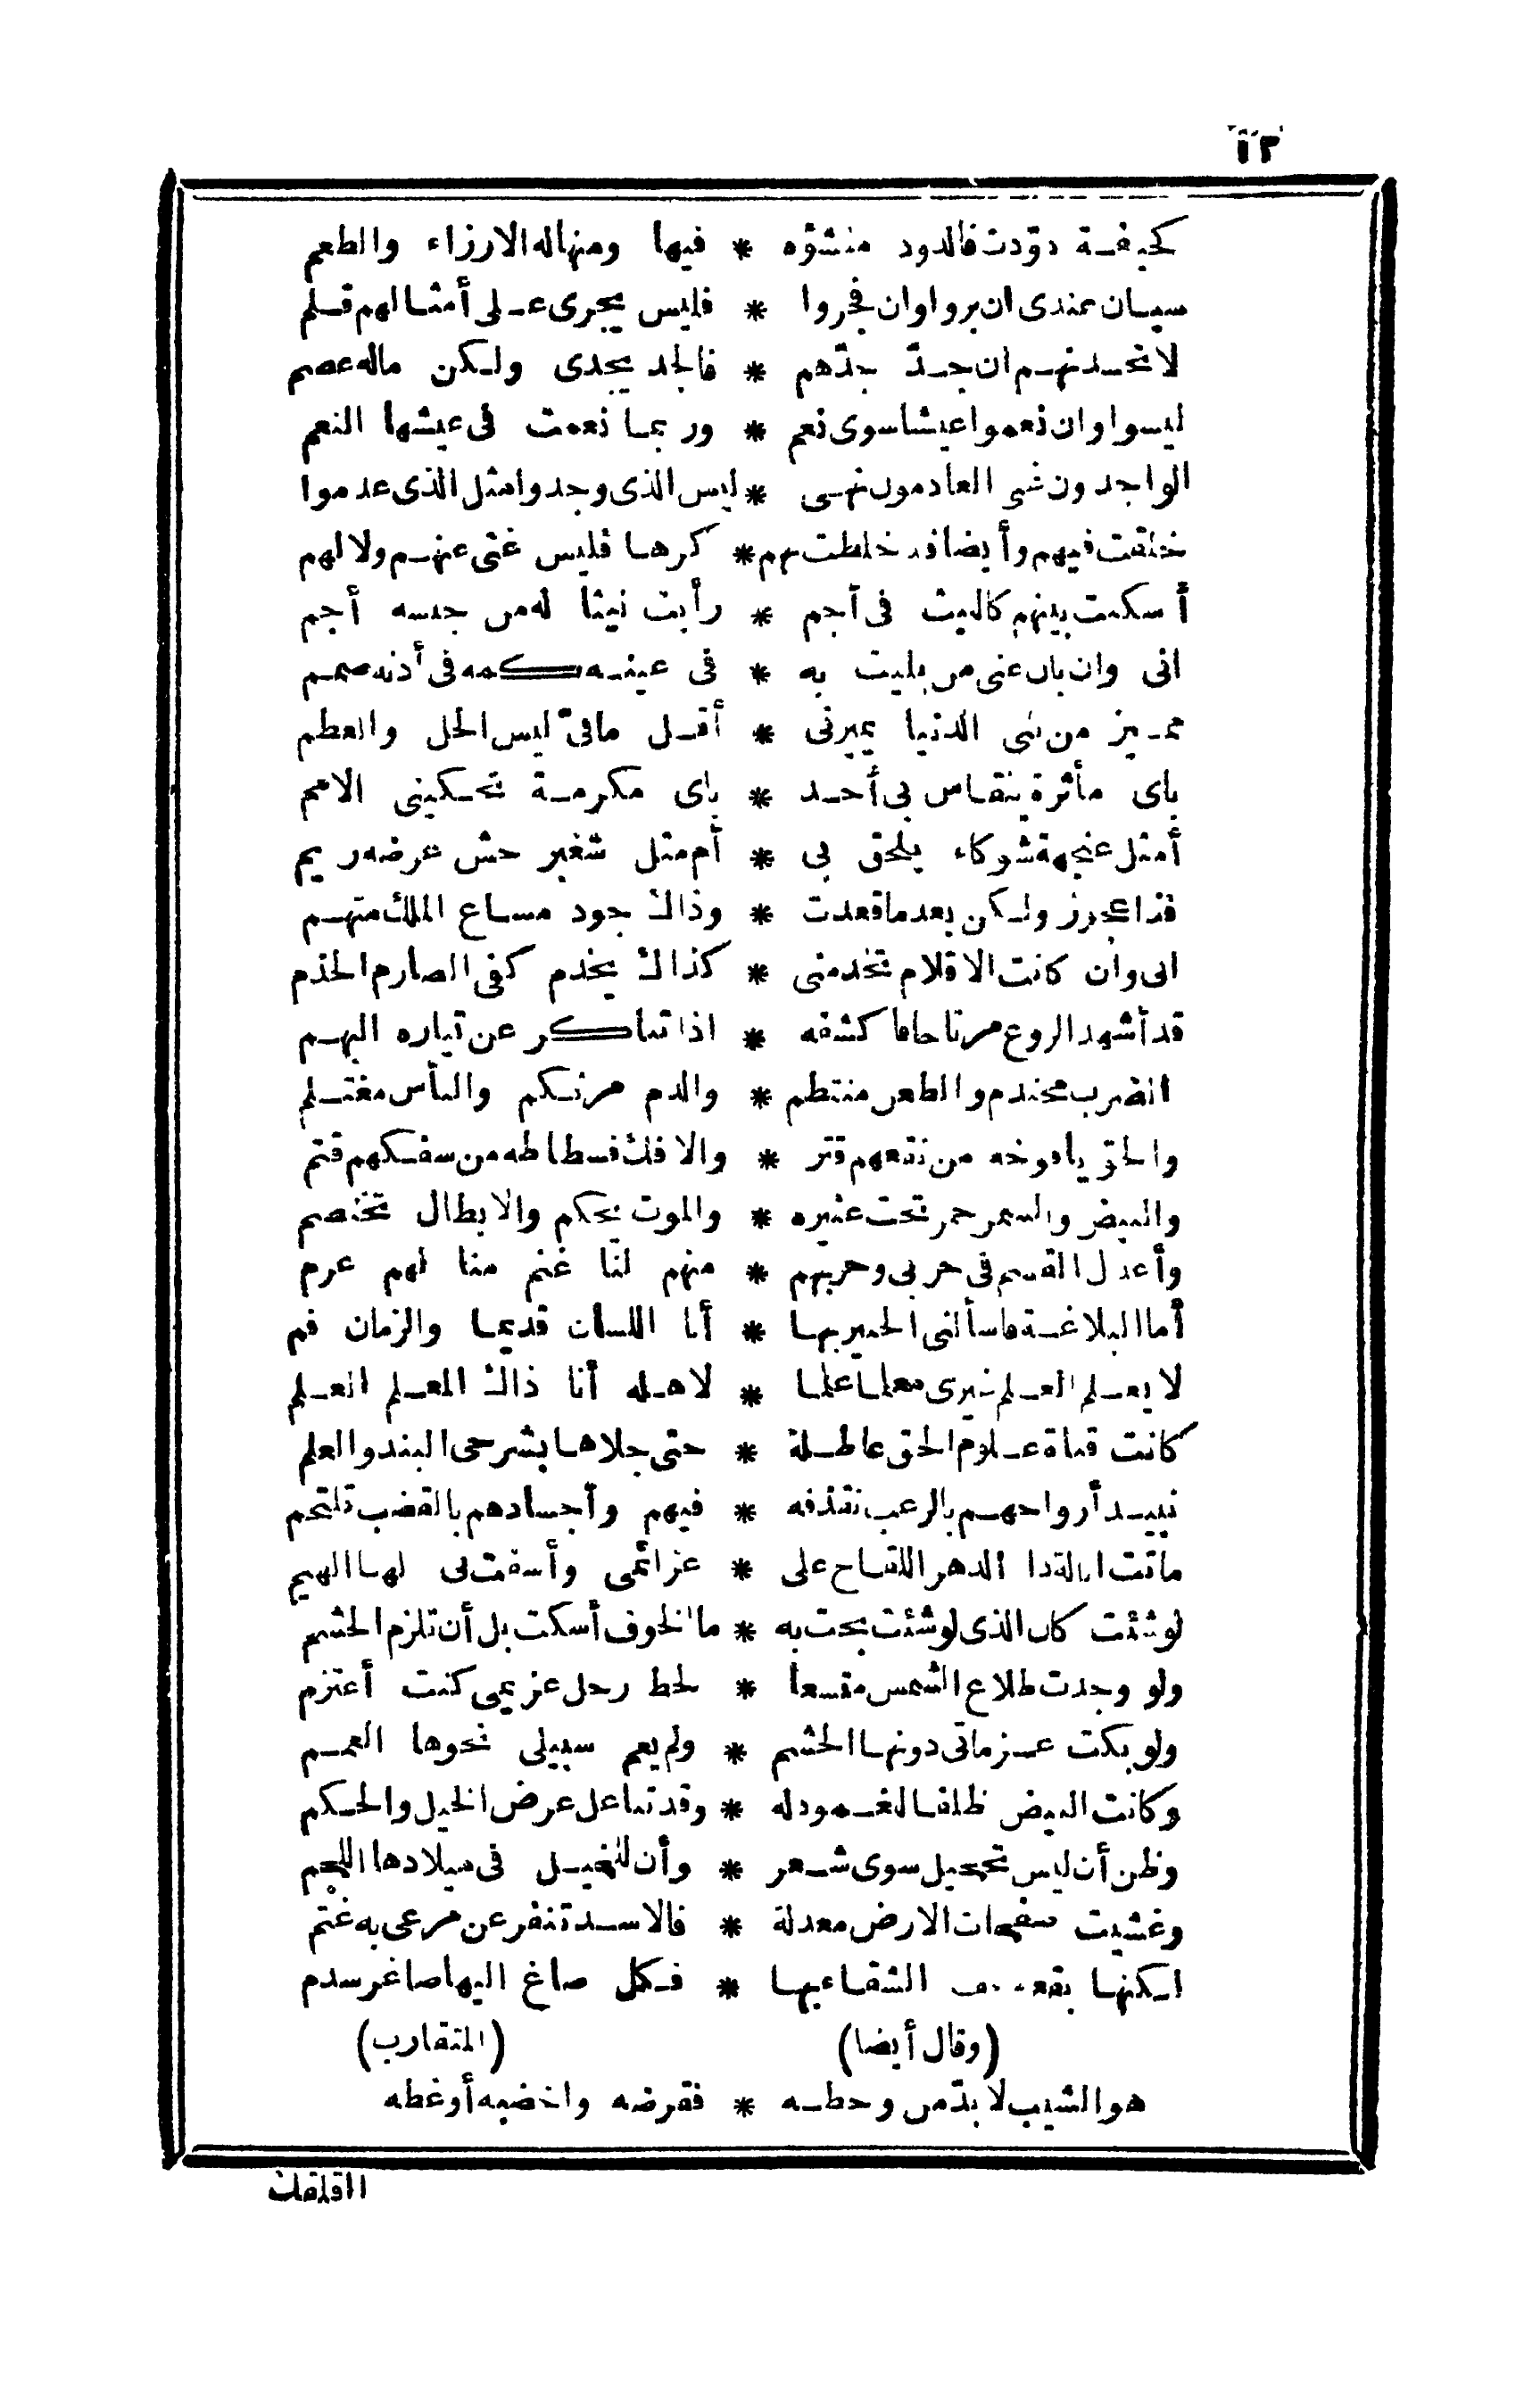 كجيفة دوّدت فالدود منشؤه * فيها ومنها له الارزاء والطعم
سيان عندى ان بروا وان فجروا * فليس يجرى على أمثالهم قلم
لا تحسدنهم ان جدّ جدّهم * فالجد يجدى ولكن ماله عصم
ليسوا وان نعموا عيشا سوى نعم * وربما نعمت فى عيشها النعم
الواجدون غنى العادمون نهى * ليس الذى وجدوا مثل الذى عدموا
خلقت فيهم وأيضا قد خلطت بهم * كرها فليس غنى عنهم ولا لهم
أسكنت بينهم كالليث فى أجم * رأيت ليثا له من جنسه أجم
انى وان بان عنى من بليت به * فى عينه كمه فى أذنه صمم
مميز من بنى الدنيا يميزنى * أقل مافىّ ليس الحل والعظم
باى مأثرة ينقاس بى أحد * باى مكرمة تحكينى الامم
أمثل عنجهة شوكاء يلحق بى * أم مثل شغبر حش عرضه ريم
فذا عجوز ولكن بعد ما قعدت * وذاك جود مساع الملك متهم
انى وان كانت الاقلام تخدمنى * كذاك يخدم كفى الصارم الخذم
قد أشهد الروع مرتاحا فاكشفه * اذا تناكر عن تياره البهم
الضرب محتدم والطعن منتظم * والدم مرتكم والبأس مغتلم
والجو يافوخه من نقعهم قتر * والافك فسطاطه من سفكهم قتم
والبيض والسمر حمر تحت عثيره * والموت يحكم والابطال تختصم
وأعدل القسم فى حربى وحربهم * منهم لنا غنم منا لهم غرم
أما البلاغة فاسألنى الخبير بها * أنا اللسان قديما والزمان فم
لا يعلم العلم غيرى معلما علما * لاهله أنا ذاك المعلم العلم
كانت قناة علوم الحق عاطلة * حتى جلاها بشرحى البند والعلم
نبيد أرواحهم بالرعب نقذفه * فيهم وأجسادهم بالقضب تلتحم
ماتت ابالة ذا الدهر اللقاح على * عزائمى وأسفت بى لها الهيم
لو شئت كان الذى لو شئت بحت به * ما الخوف أسكت بل أن تلزم الحشم
ولو وجدت طلاع الشمس متسعا * لحط رحل عزيمى كنت أعتزم
ولو بكت عزماتى دونها الحشم * ولم يعم سبيلى نحوها العمم
وكانت البيض ظلفا لغمود له * وقد تناعل عرض الخيل والحكم
وظن أن ليس تحجيل سوى شعر * وأن للخيل فى ميلادها اللجم
وغشيت صفحات الارض معدلة * فالاسد تنفر عن مرعى به غنم
لكنها بقعة الشقاء بها * فكل صاغ اليها صاغر سدم
(وقال أيضا) (المتقارب)
هو الشيب لا بدّ من وخطه * فقرضه واخضبه أو غطه
أأقلقك